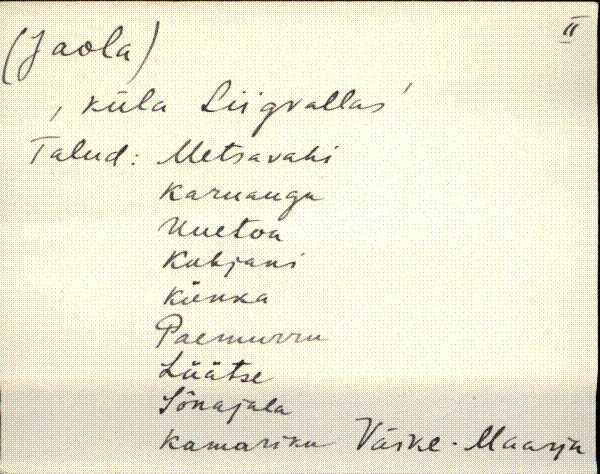 II
(Jaola)
, küla Liigvallas'
Talud: Metsavahi
Karuauga
Uuetoa
Kubjani
Künka
Paemurru
Lüütse
Sõnajala
Kamariku Väike-Maarja